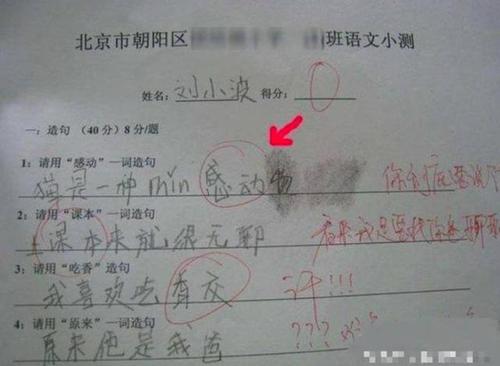 北京市朝阳区 班语文小测
姓名: 刘小波 得分: 0
一: 造句 (40分) 8分/题
1: 请用“感动”一词造句
猫是一种 min 感动物
2: 请用“课本”一词造句
上课本来就很无聊
看来我是要找你爸聊
3: 请用“吃香”一词造句
我喜欢吃香交
汗!!!
4: 请用“原来”一词造句
原来他是我爸
???